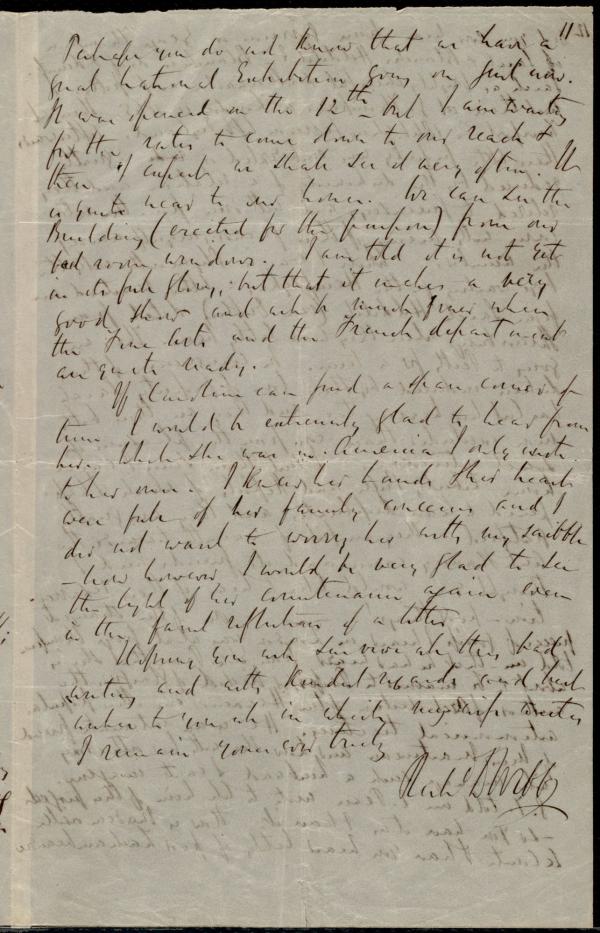 11
Perhaps you do not know that we have a
great National Exhibition going on just now.
It was opened on the 12th – but I am waiting
for the rates to come down to our reach &
then I expect we shall see it very often. It
is quite near to our house. We can see the
Building (erected for the purpose) from our
bed room windows. I am told it is not yet
in its full glory, but that it makes a very
good show and will be much finer when
the Fine Arts and the French department
are quite ready.
If Caroline can find a spare corner of
time I would be extremely glad to hear from
her. While she was in America I only wrote
to her once. I knew her hands & her heart
were full of her family concerns and I
did not want to worry her with my scribble
– now however I would be very glad to see
the light of her countenance again even
in the faint reflection of a letter
Hoping you will survive all this bad
writing and with kindest regards and best
wishes to you all in which my wife unites
I remain yours very truly
Richd D Webb